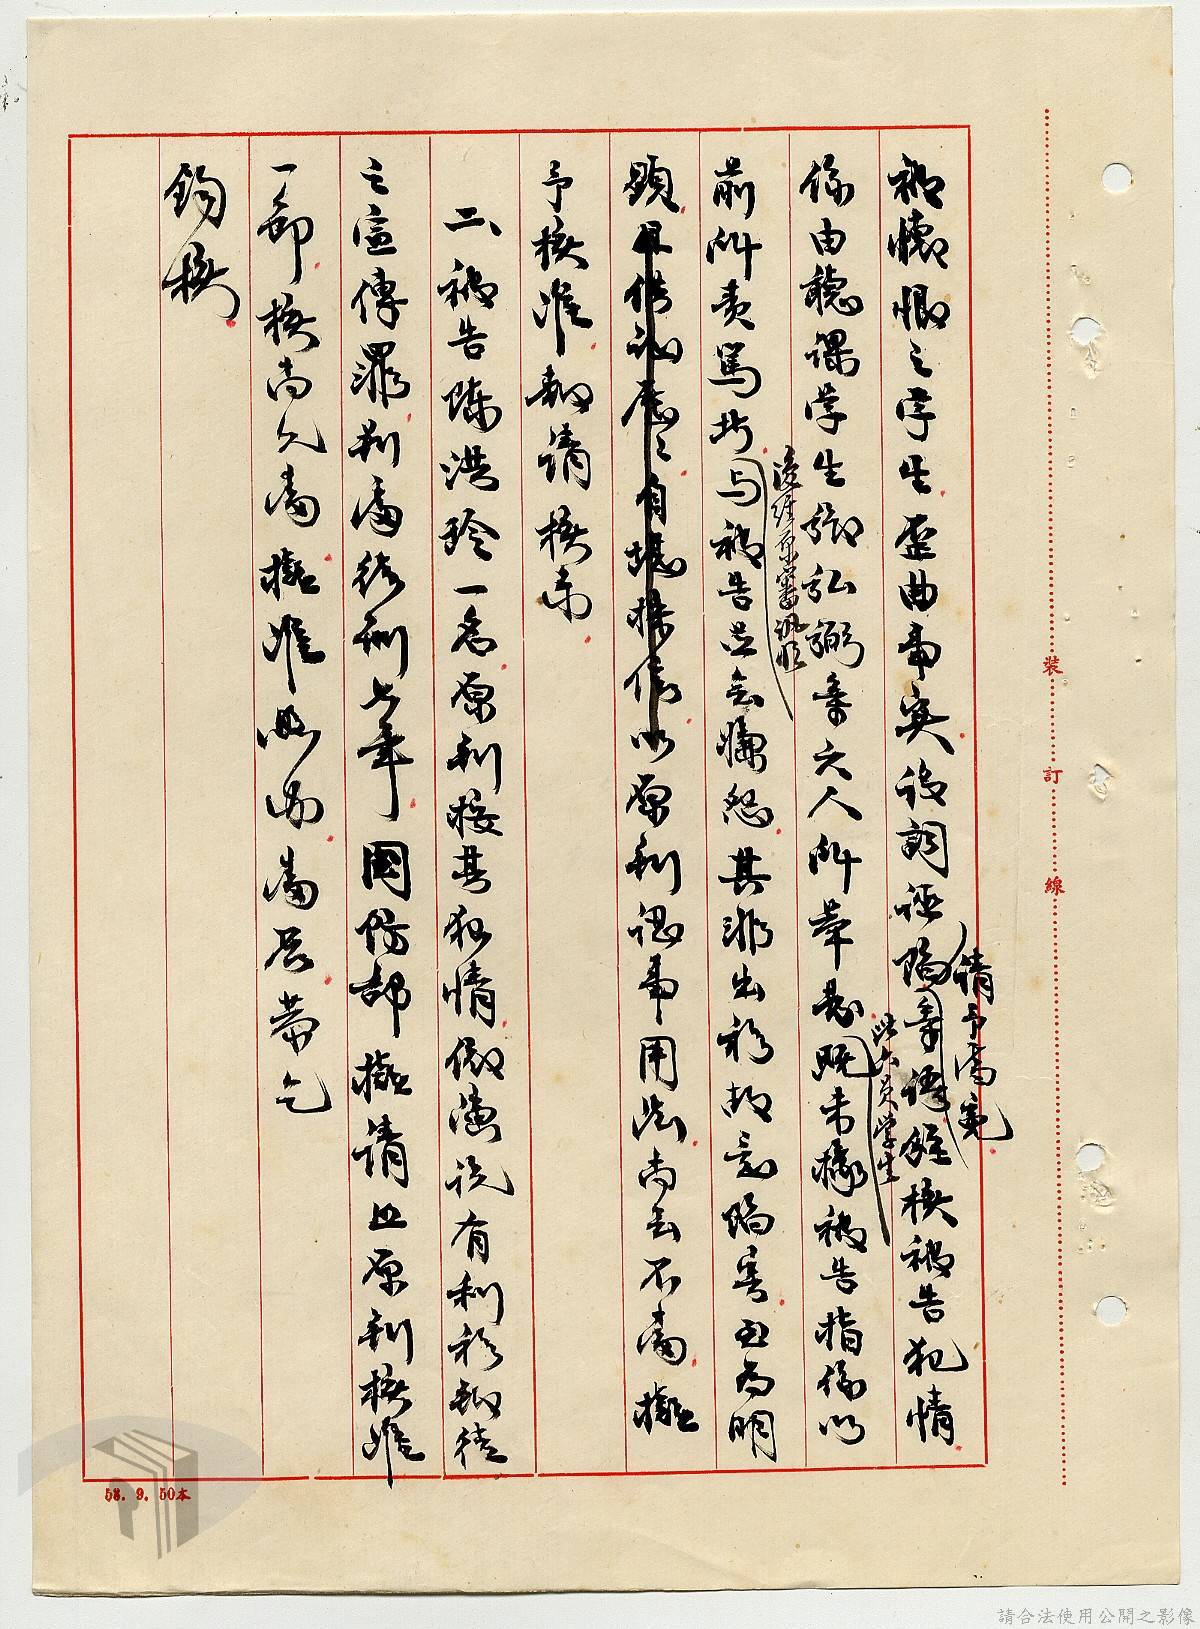 被懷恨之學生歪曲事實設詞誣陷等語經核被告犯情
請予審究
係由聽課學生鄒弘彌等六人所牽是既未據被告指係以
此六員學生
前所責罵者與被告并無嫌怨其非出於故意陷害至為明
復經原審訊明
顯且供詞歷歷自堪採信以原判認事用法尚無不當擬
予核准敬請核示
二、被告陳洪玲一名原判按其犯情依連說有利於叛徒
之宣傳罪判處徒刑七年國防部擬請照原判核准
一節核尚允當擬准照辦當否恭乞
鈞核
裝訂線
58. 9. 50本
請合法使用公開之影像